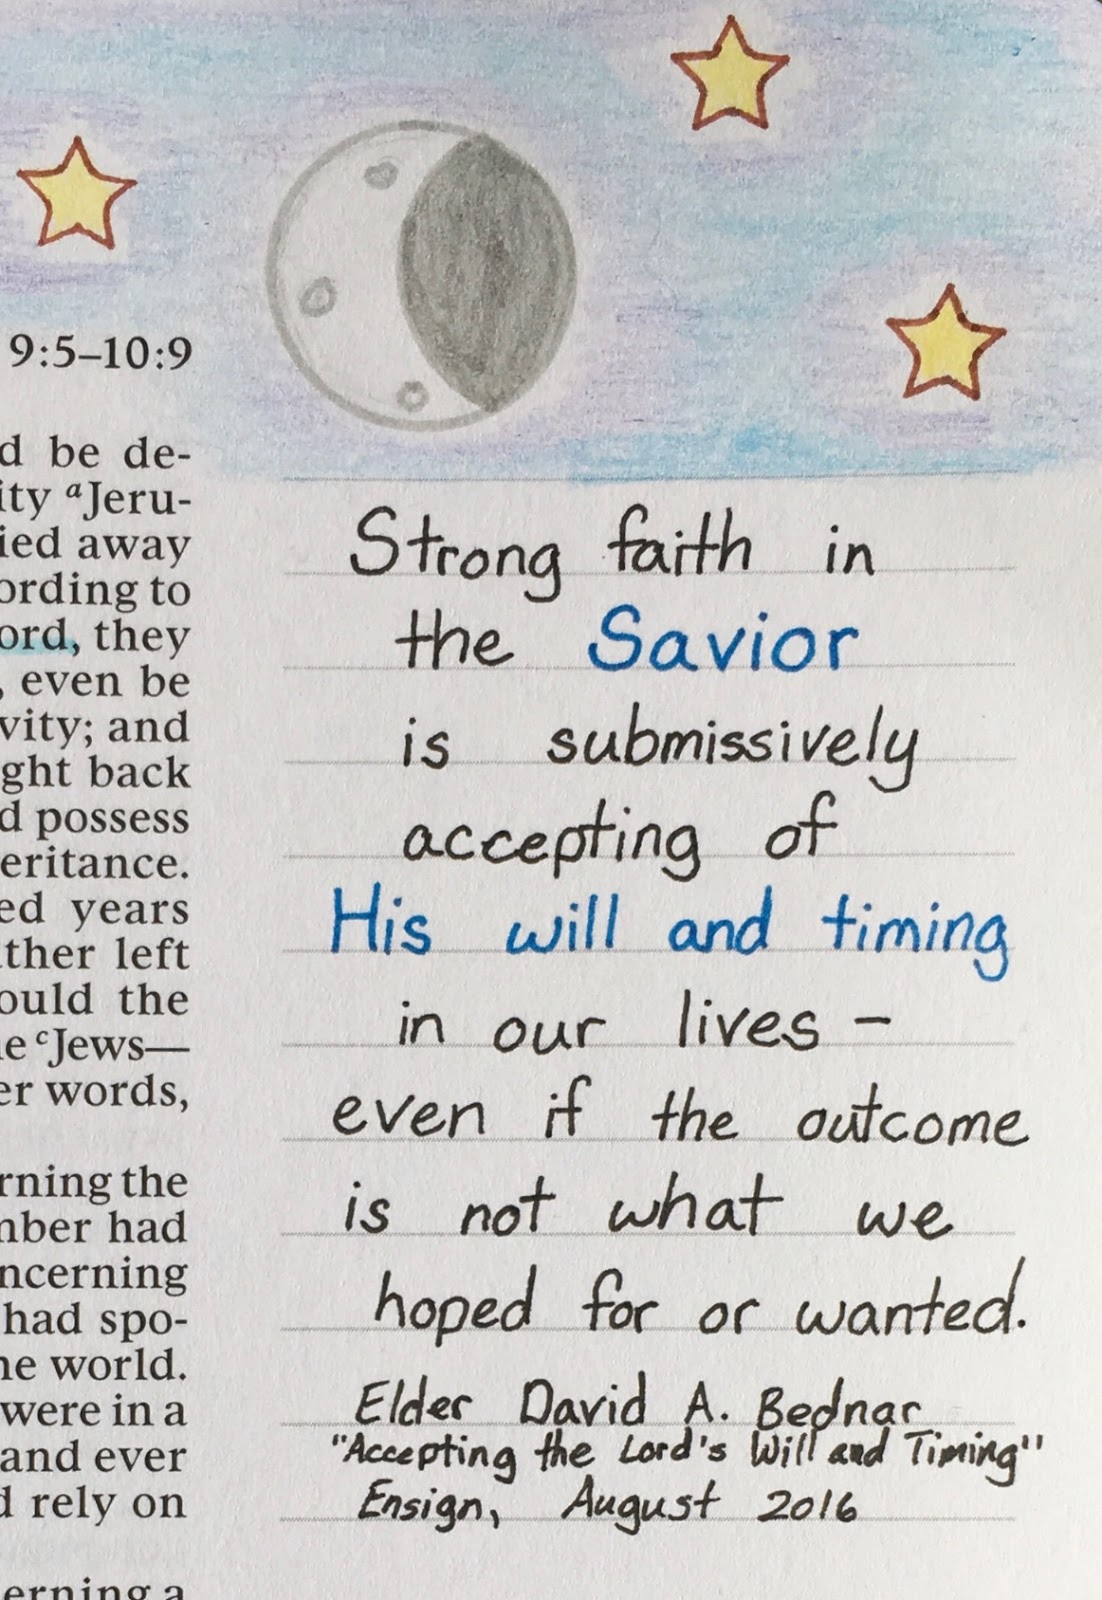 9:5–10:9
d be de-
ity aJeru-
ied away
ording to
ord, they
, even be
vity; and
ght back
d possess
eritance.
ed years
ther left
ould the
e cJews—
er words,
rning the
mber had
ncerning
had spo-
ne world.
were in a
and ever
d rely on
erning a
Strong faith in
the Savior
is submissively
accepting of
His will and timing
in our lives –
even if the outcome
is not what we
hoped for or wanted.
Elder David A. Bednar
"Accepting the Lord's Will and Timing"
Ensign, August 2016